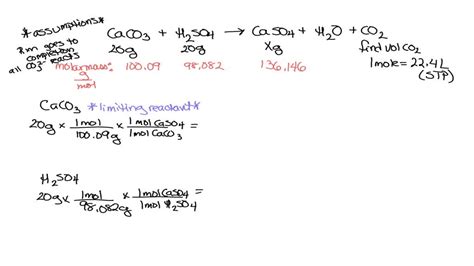 *assumptions*
Rxn goes to
completion
all CO3 reacts
CaCO3 + H2SO4 → CaSO4 + H2O + CO2
20g 20g Xg find vol CO2
molar mass: 100.09 98.082 136.146 1mole = 22.4L
g/mol (STP)
CaCO3 *limiting reactant*
20g × 1mol/100.09g × 1molCaSO4/1molCaCO3 =
H2SO4
20g × 1mol/98.082g × 1molCaSO4/1molH2SO4 =